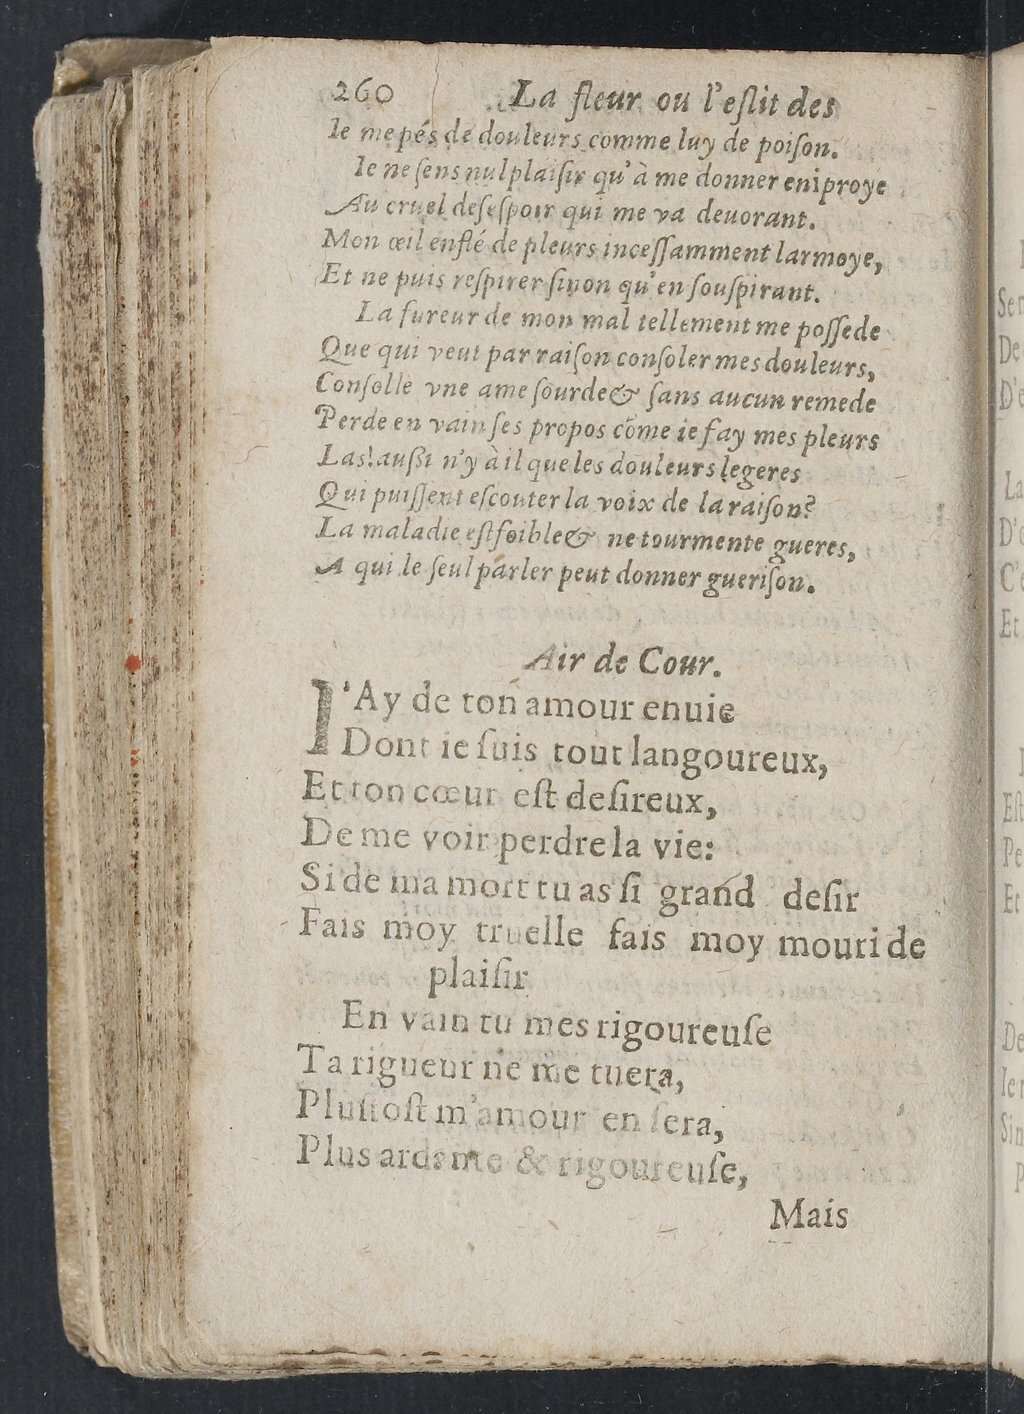 260 La fleur ou l'eslit des
Ie me pés de douleurs comme luy de poiſon.
Ie ne ſens nul plaiſir qu'à me donner en iproye
Au cruel deſeſpoir qui me va deuorant.
Mon œil enflé de pleurs inceſſamment larmoye,
Et ne puis reſpirer ſinon qu'en ſouſpirant.
La fureur de mon mal tellement me poſſede
Que qui veut par raiſon conſoler mes douleurs,
Conſolle vne ame ſourde & ſans aucun remede
Perde en vain ſes propos cōme ie fay mes pleurs
Las! auſſi n'y à il que les douleurs legeres
Qui puiſſent eſcouter la voix de la raiſon?
La maladie eſt foible & ne tourmente gueres,
A qui le ſeul parler peut donner gueriſon.
Air de Cour.
I'Ay de ton amour enuie
Dont ie ſuis tout langoureux,
Et ton cœur eſt deſireux,
De me voir perdre la vie:
Si de ma mort tu as ſi grand deſir
Fais moy truelle fais moy mouri de
plaiſir
En vain tu mes rigoureuſe
Ta rigueur ne me tuera,
Pluſtoſt m'amour en ſera,
Plus ardante & rigoureuſe,
Mais